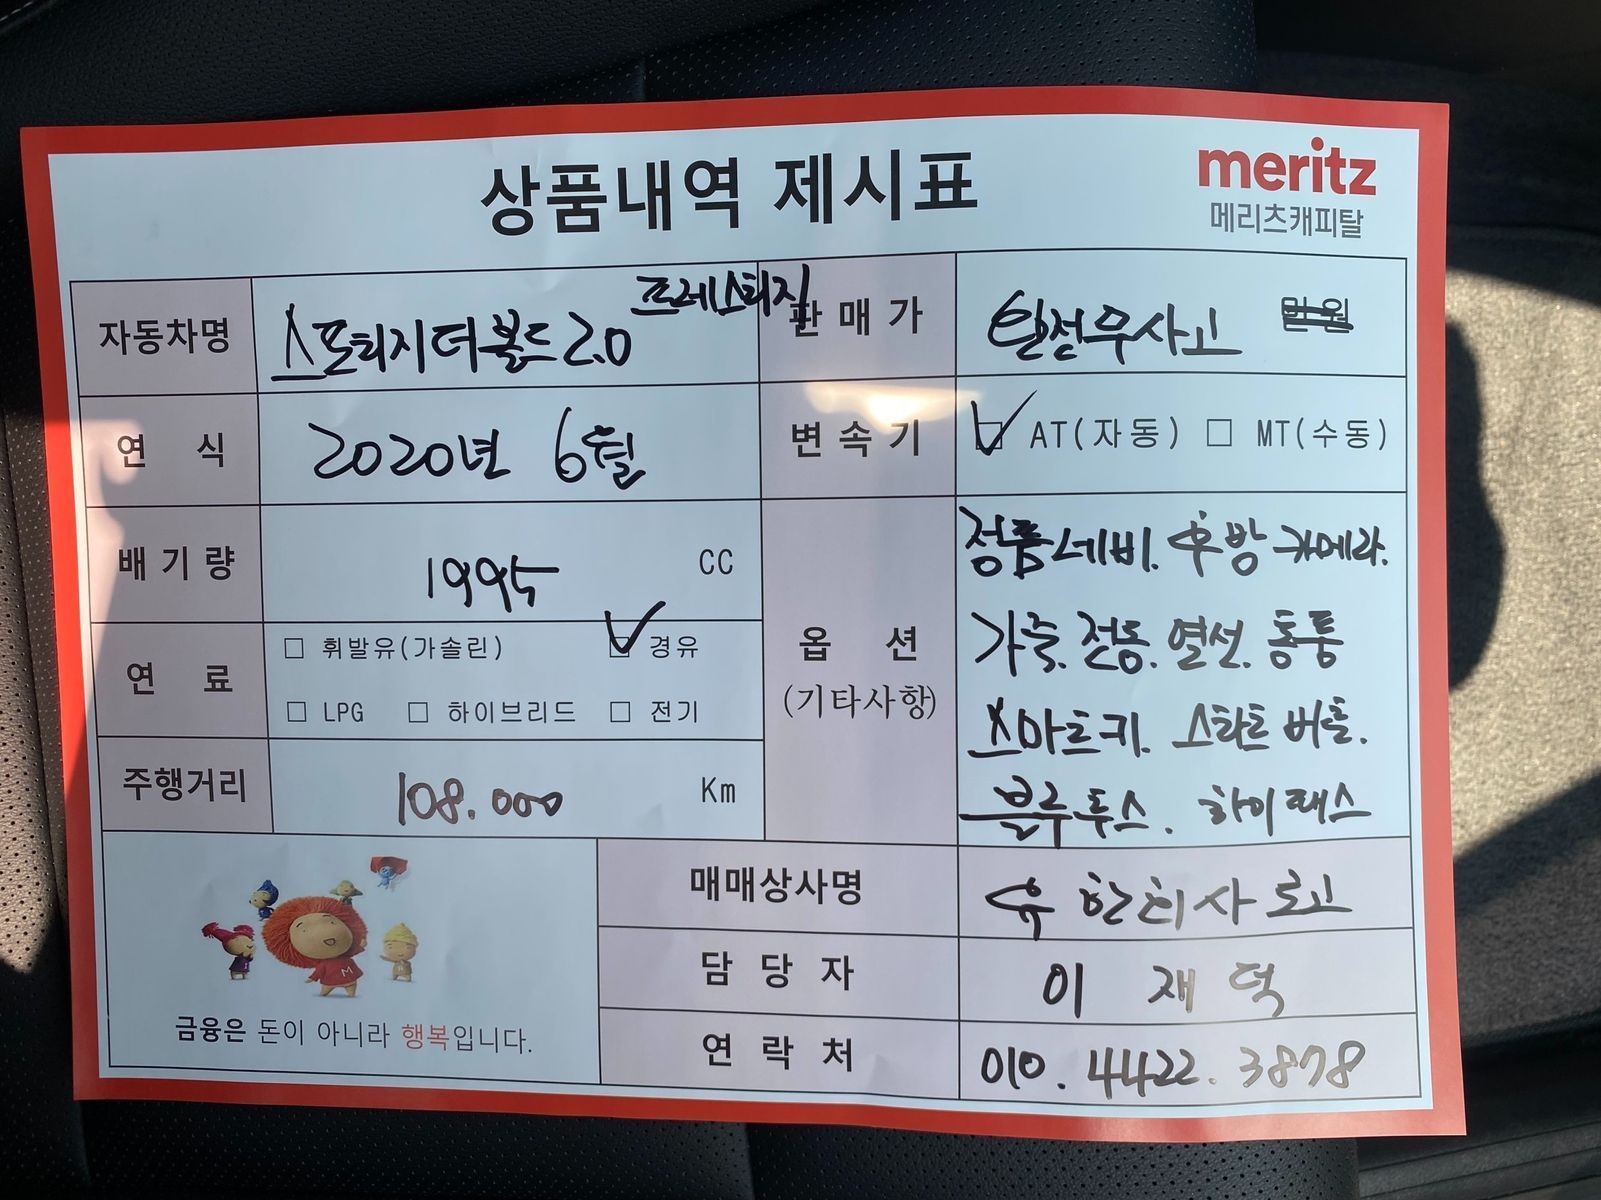 상품내역 제시표
meritz
메리츠캐피탈
자동차명 스포티지더볼드2.0 프레스티지
판매가 일전무사고 만원
연 식 2020년 6월
변속기 AT(자동) □ MT(수동)
배기량 1995 CC
연 료 □ 휘발유(가솔린) 경유
□ LPG □ 하이브리드 □ 전기
주행거리 108.000 Km
옵 션
(기타사항)
정품네비. 후방카메라.
가죽. 전동. 열선. 통풍
스마트키. 스타트버튼.
블루투스. 하이패스
매매상사명 유한회사로고
담 당 자 이재덕
연 락 처 010.4422.3878
M
금융은 돈이 아니라 행복입니다.